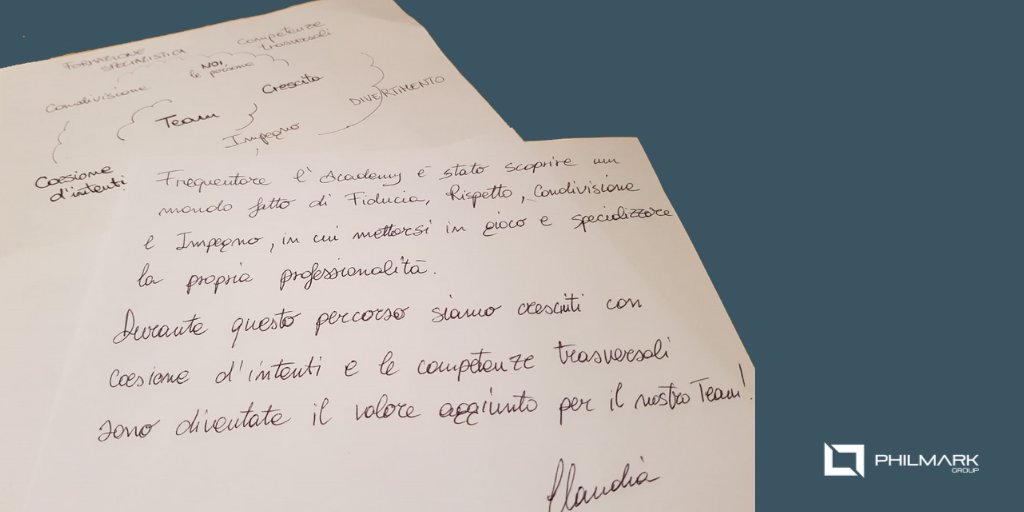 FORMAZIONE
SPECIALISTICA
Competenze
trasversali
NOI
le persone
Condivisione
Crescita
DIVERTIMENTO
Team
Impegno
Coesione
d'intenti
Frequentare l'Academy è stato scoprire un
mondo fatto di Fiducia, Rispetto, Condivisione
e Impegno, in cui mettersi in gioco e specializzare
la propria professionalità.
Durante questo percorso siamo cresciuti con
coesione d'intenti e le competenze trasversali
sono diventate il valore aggiunto per il nostro Team!
Claudia
PHILMARK
GROUP